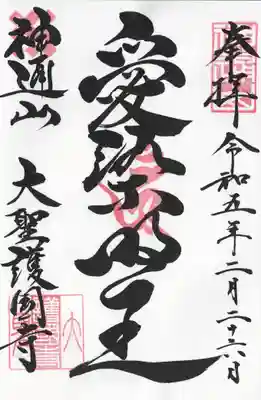 奉拝 令和五年二月二十六日
愛染明王
神通山
大聖護国寺